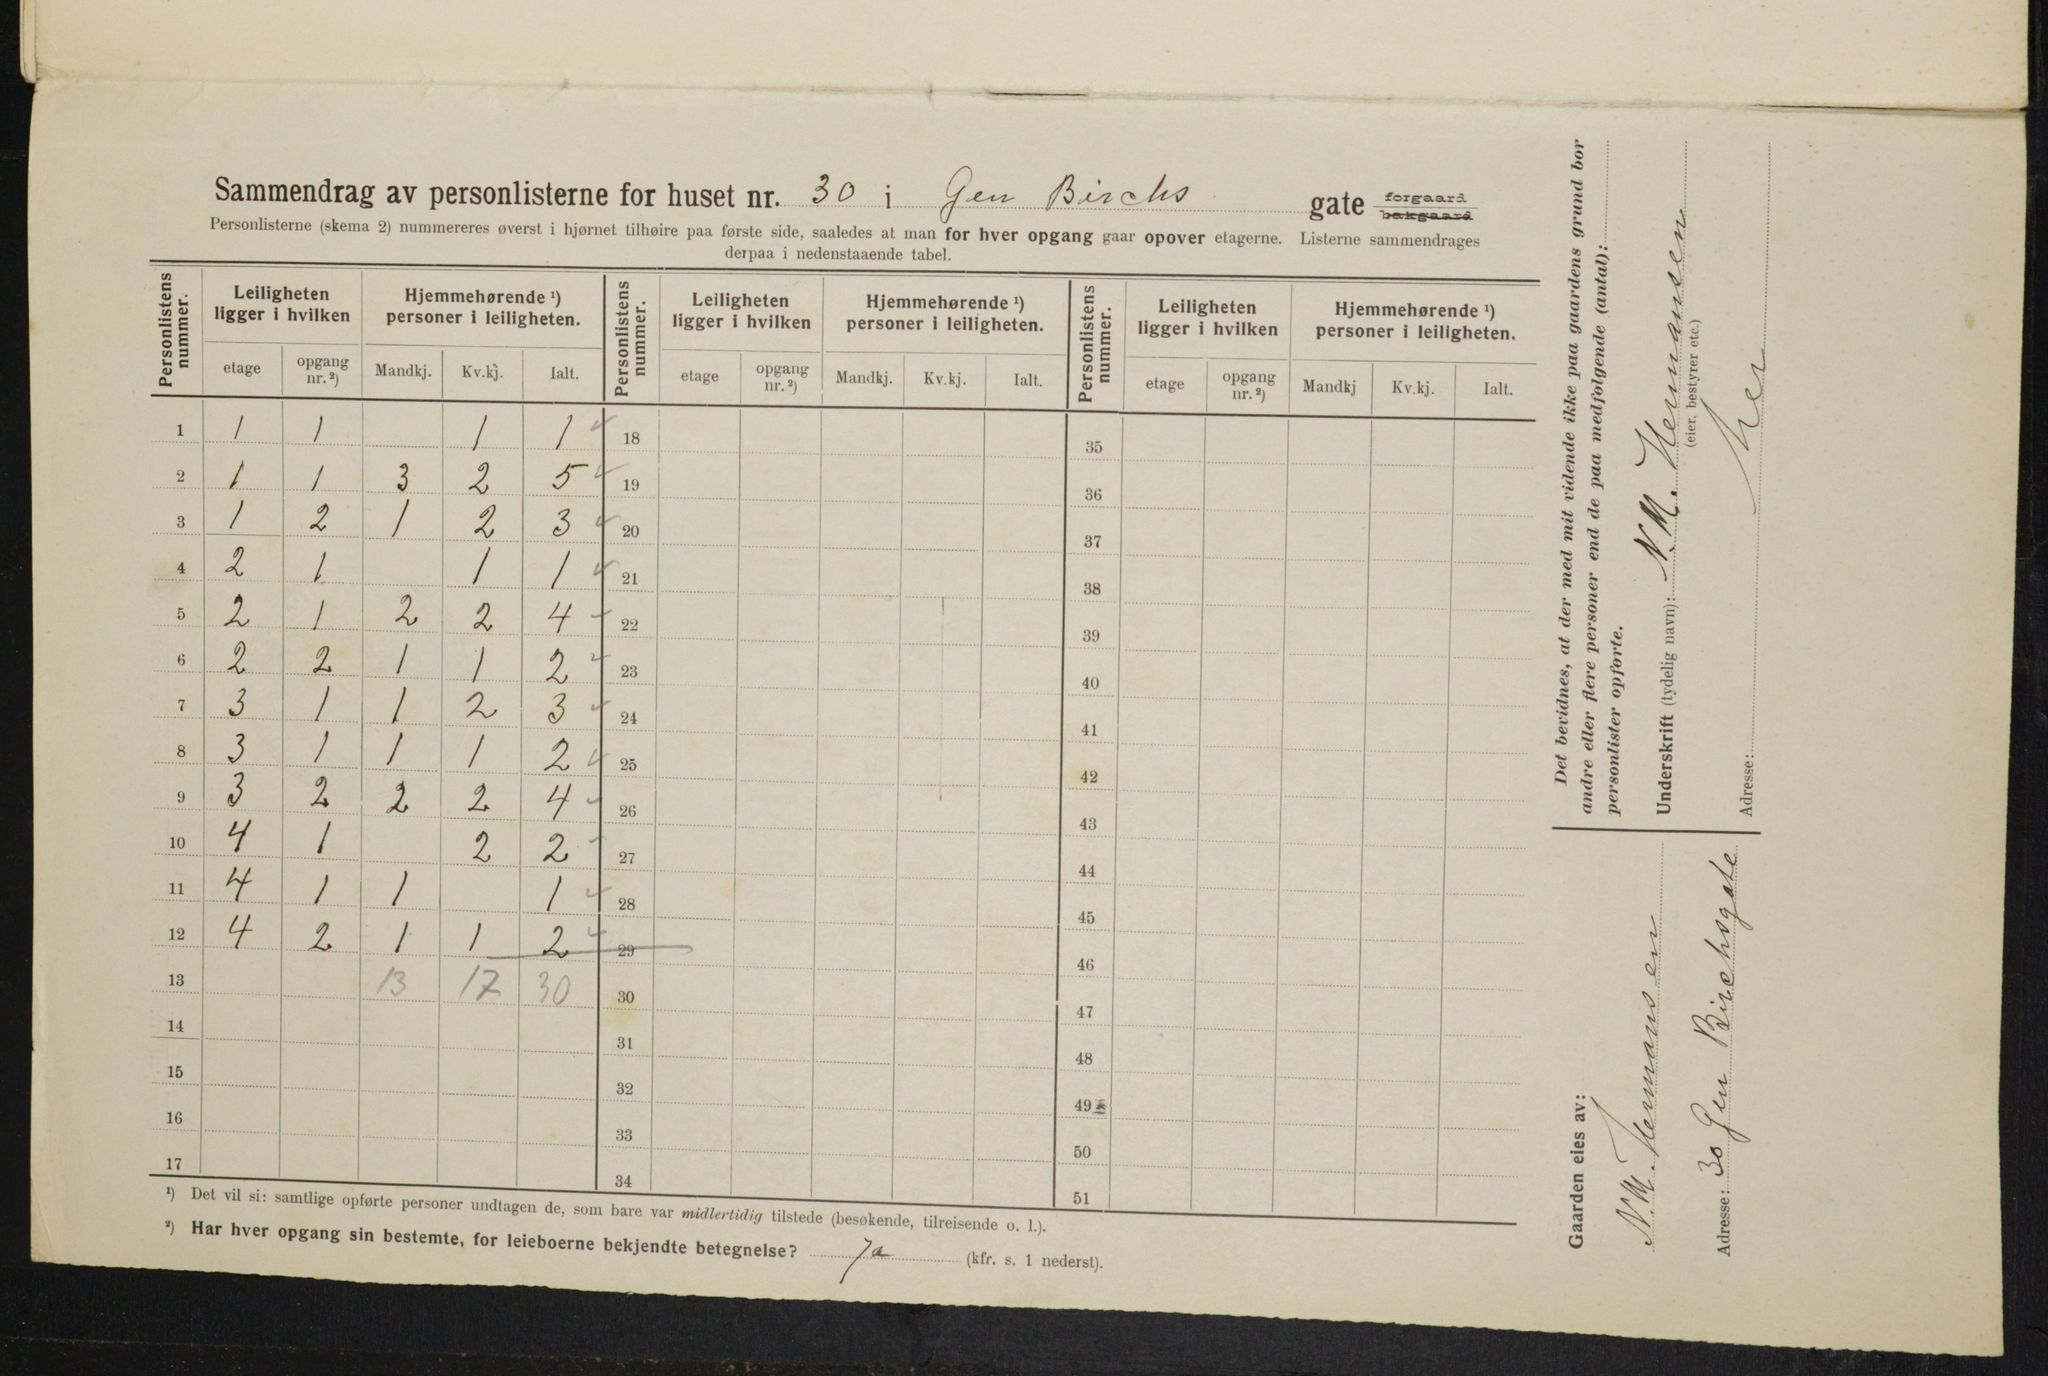 Sammendrag av personlisterne for huset nr. 30 i Gen Birchs gate forgaard bakgaard
Personlisterne (skema 2) nummereres øverst i hjørnet tilhøire paa første side, saaledes at man for hver opgang gaar opover etagerne. Listerne sammendrages
derpaa i nedenstaaende tabel.
Personlistens nummer. Leiligheten ligger i hvilken Hjemmehørende ¹) personer i leiligheten. Personlistens nummer. Leiligheten ligger i hvilken Hjemmehørende ¹) personer i leiligheten. Personlistens nummer. Leiligheten ligger i hvilken Hjemmehørende ¹) personer i leiligheten.
etage opgang nr. ²) Mandkj. Kv.kj. Ialt. etage opgang nr. ²) Mandkj. Kv.kj. Ialt. etage opgang nr. ²) Mandkj Kv.kj. Ialt.
1 1 1 1 1 18 35
2 1 1 3 2 5 19 36
3 1 2 1 2 3 20 37
4 2 1 1 1 21 38
5 2 1 2 2 4 22 39
6 2 2 1 1 2 23 40
7 3 1 1 2 3 24 41
8 3 1 1 1 2 25 42
9 3 2 2 2 4 26 43
10 4 1 2 2 27 44
11 4 1 1 1 28 45
12 4 2 1 1 2 29 46
13 13 17 30 30 47
14 31 48
15 32 49
16 33 50
17 34 51
¹) Det vil si: samtlige opførte personer undtagen de, som bare var midlertidig tilstede (besøkende, tilreisende o. l.).
²) Har hver opgang sin bestemte, for leieboerne bekjendte betegnelse? Ja (kfr. s. 1 nederst).
Det bevidnes, at der med mit vidende ikke paa gaardens grund bor
andre eller flere personer end de paa medfølgende (antal):
personlister opførte.
Underskrift (tydelig navn): N. M. Hermansen
(eier, bestyrer etc.)
Adresse:
Gaarden eies av:
N. M. Hermansen
Adresse: 30 Gen Birchsgate